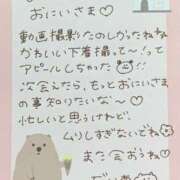 おにいさま♡
動画撮影たのしかったねぇね
かわいい下着撮って〜って
アピールしちゃった
次会えたら、もっとおにいさま
の事知りたいな〜♡
忙しいと思うけれど
ムりしすぎないでね
また会おうね